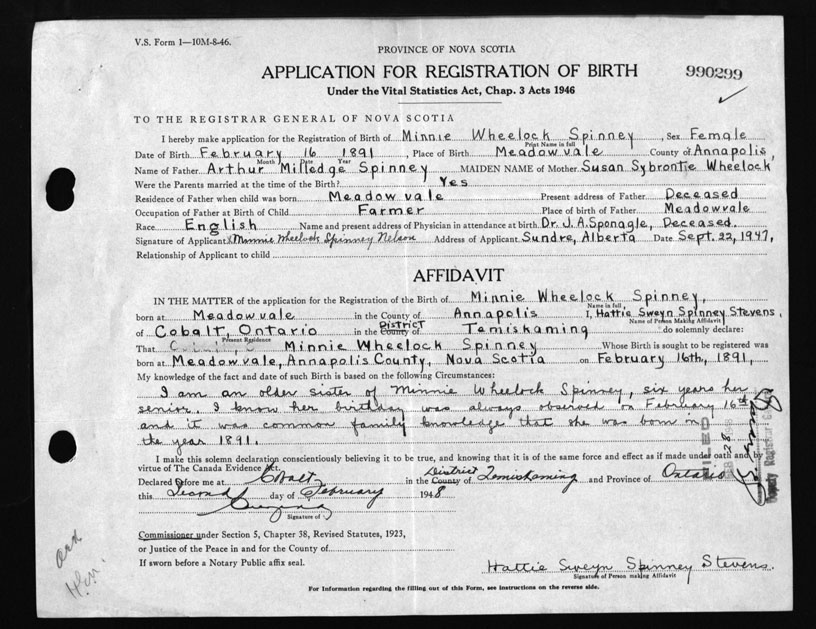 V.S. Form 1—10M-8-46.
PROVINCE OF NOVA SCOTIA
APPLICATION FOR REGISTRATION OF BIRTH
990299
Under the Vital Statistics Act, Chap. 3 Acts 1946
TO THE REGISTRAR GENERAL OF NOVA SCOTIA
I hereby make application for the Registration of Birth of Minnie Wheelock Spinney, Sex Female
Print Name in full
Date of Birth February 16 1891, Place of Birth Meadowvale County of Annapolis,
Month Date Year
Name of Father Arthur Milledge Spinney MAIDEN NAME of Mother Susan Sybrontie Wheelock
Were the Parents married at the time of the Birth? Yes
Residence of Father when child was born Meadowvale Present address of Father Deceased
Occupation of Father at Birth of Child Farmer Place of birth of Father Meadowvale
Race English Name and present address of Physician in attendance at birth Dr. J. A. Sponagle, Deceased.
Signature of Applicant Minnie Wheelock Spinney Nelson Address of Applicant Sundre, Alberta Date Sept. 22, 1947,
Relationship of Applicant to child
AFFIDAVIT
IN THE MATTER of the application for the Registration of the Birth of Minnie Wheelock Spinney,
Name in full
born at Meadowvale in the County of Annapolis I, Hattie Sweyn Spinney Stevens,
Name of Person Making Affidavit
of Cobalt, Ontario in the County of District Temiskaming do solemnly declare:
Present Residence
That Minnie Wheelock Spinney Whose Birth is sought to be registered was
born at Meadowvale, Annapolis County, Nova Scotia on February 16th, 1891,
My knowledge of the fact and date of such Birth is based on the following Circumstances:
I am an older sister of Minnie Wheelock Spinney, six years her
senior. I know her birthday was always observed on February 16th
and it was common family knowledge that she was born in
the year 1891.
I make this solemn declaration conscientiously believing it to be true, and knowing that it is of the same force and effect as if made under oath and by
virtue of The Canada Evidence Act.
Declared before me at Cobalt in the County of District Temiskaming and Province of Ontario
this Second day of February 1948
Signature of
Commissioner under Section 5, Chapter 38, Revised Statutes, 1923,
or Justice of the Peace in and for the County of
If sworn before a Notary Public affix seal.
Hattie Sweyn Spinney Stevens.
Signature of Person making Affidavit
For Information regarding the filling out of this Form, see instructions on the reverse side.
FILED
28